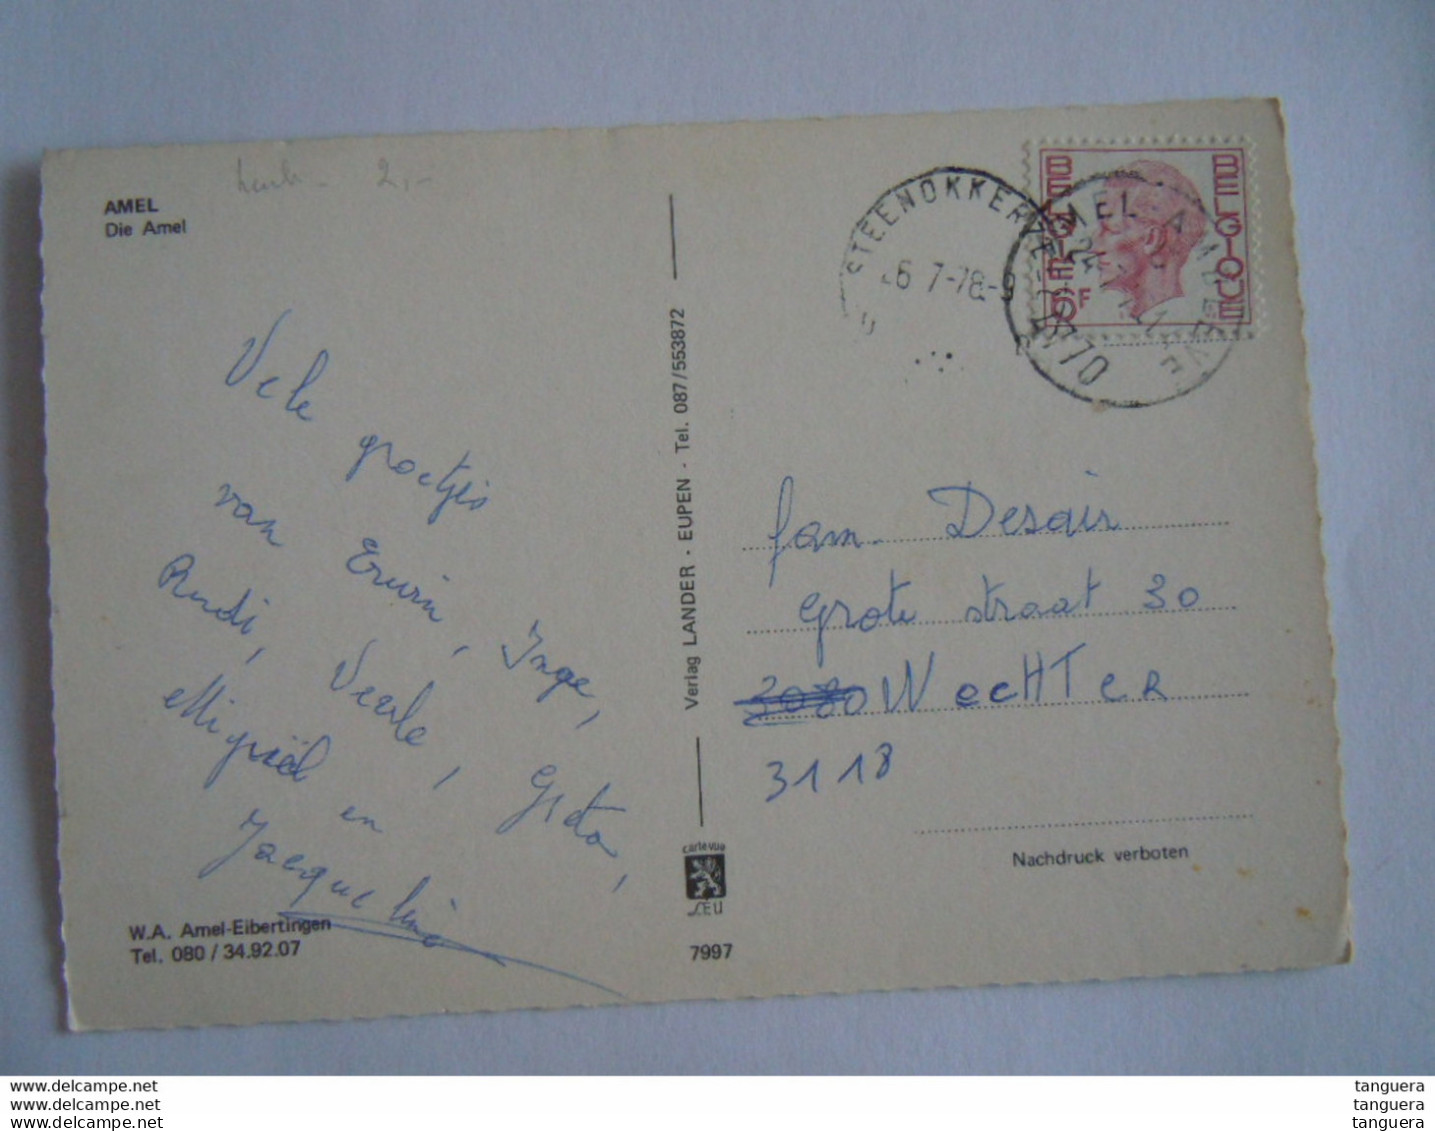 2,-
AMEL
Die Amel
Vele groetjes
van Erwin, Inge,
Rudi, Veerle, Greta,
Miguël en
Jacqueline
W.A. Amel-Eibertingen
Tel. 080 / 34.92.07
Verlag LANDER - EUPEN - Tel. 087/553872
carte vue
7997
STEENOKKERZEEL
7-78
BELGIE BELGIQUE
AMEL-AMBLEVE
4770
fam. Desair
Grote straat 30
3080 WecHTeR
3118
Nachdruck verboten
www.delcampe.net
www.delcampe.net
www.delcampe.net
tanguera
tanguera
tanguera